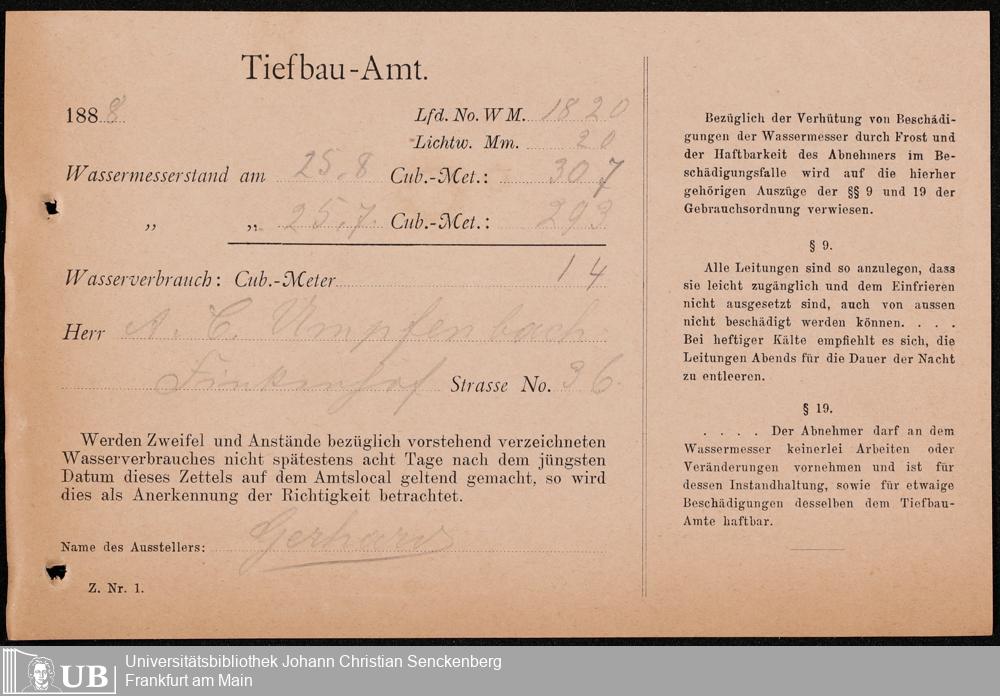 Tiefbau-Amt.
1888 Lfd. No. W M. 1820
Lichtw. Mm. 20
Wassermesserstand am 25.8 Cub.-Met.: 307
„ „ 25.7. Cub.-Met.: 293
Wasserverbrauch: Cub.-Meter 14
Herr A. C. Umpfenbach
Finkenhof Strasse No. 36.
Werden Zweifel und Anstände bezüglich vorstehend verzeichneten
Wasserverbrauches nicht spätestens acht Tage nach dem jüngsten
Datum dieses Zettels auf dem Amtslocal geltend gemacht, so wird
dies als Anerkennung der Richtigkeit betrachtet.
Name des Ausstellers: Gerhard
Z. Nr. 1.
Bezüglich der Verhütung von Beschädi-
gungen der Wassermesser durch Frost und
der Haftbarkeit des Abnehmers im Be-
schädigungsfalle wird auf die hierher
gehörigen Auszüge der §§ 9 und 19 der
Gebrauchsordnung verwiesen.
§ 9.
Alle Leitungen sind so anzulegen, dass
sie leicht zugänglich und dem Einfrieren
nicht ausgesetzt sind, auch von aussen
nicht beschädigt werden können. . . .
Bei heftiger Kälte empfiehlt es sich, die
Leitungen Abends für die Dauer der Nacht
zu entleeren.
§ 19.
. . . . Der Abnehmer darf an dem
Wassermesser keinerlei Arbeiten oder
Veränderungen vornehmen und ist für
dessen Instandhaltung, sowie für etwaige
Beschädigungen desselben dem Tiefbau-
Amte haftbar.
UB
Universitätsbibliothek Johann Christian Senckenberg
Frankfurt am Main